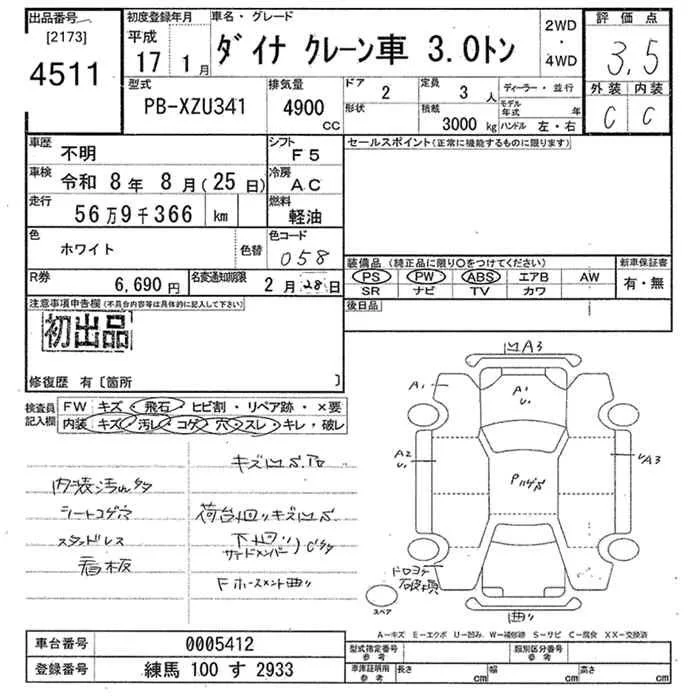 出品番号
[2173]
4511
初度登録年月
平成
17 1月
車名・グレード
ダイナ クレーン車 3.0トン
2WD
・
4WD
評価点
3.5
外装 内装
C C
型式
PB-XZU341
排気量
4900
CC
ドア
2
形状
定員
3人
積載
3000kg
ディーラー・並行
モデル年式 年
ハンドル 左・右
車歴
不明
シフト
F5
車検
令和 8年 8月(25日)
冷房
AC
走行
56万9千366 km
燃料
軽油
色
ホワイト
色替
色コード
058
R券
6,690円
名変通知期限
2月28日
セールスポイント(正常に機能するものに限ります)
装備品 (純正品に限り○をつけてください)
PS PW ABS エアB AW
SR ナビ TV カワ
新車保証書
有・無
後日品
注意事項申告欄(不具合内容等は具体的に記入して下さい)
初出品
修復歴 有〔箇所 〕
検査員
記入欄
FW キズ・飛石・ヒビ割・リペア跡・×要
内装 キズ・汚レ・コゲ・穴・スレ・キレ・破レ
内装汚れ多
シートコゲ穴
スタッドレス
看板
荷台回りキズ凹
下回り
サイドメンバー
曲り
A3
A1
A1
U
A2
U
UA3
曲り
スペア
A-キズ E-エクボ U-凹み W-補修跡 S-サビ C-腐食 XX-交換済
車台番号
0005412
登録番号
練馬 100 す 2933
型式指定番号
参考
類別区分番号
参考
車庫証明用
参考
長さ cm 幅 cm 高さ cm